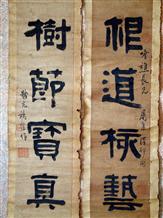 根道核藝
長兄
樹節寶真